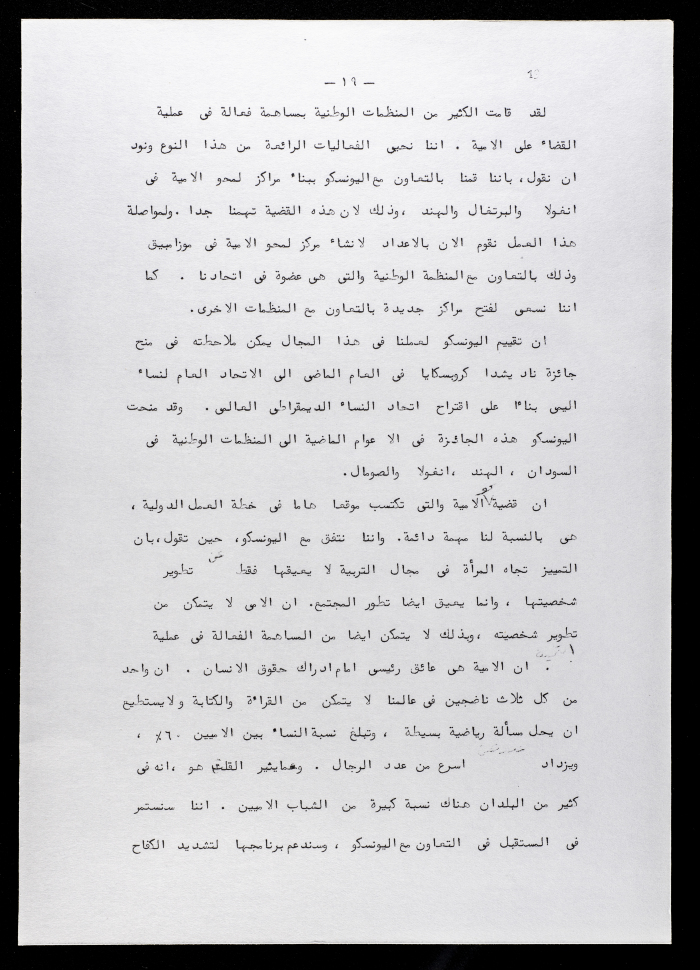 19
— ١٩ —
لقد قامت الكثير من المنظمات الوطنية بمساهمة فعالة فى عملية
القضاء على الامية . اننا نحيى الفعاليات الرائعة من هذا النوع ونود
ان نقول، باننا قمنا بالتعاون مع اليونسكو ببناء مراكز لمحو الامية فى
انغولا والبرتغال والهند ،وذلك لان هذه القضية تهمنا جدا .ولمواصلة
هذا العمل نقوم الان بالاعداد لانشاء مركز لمحو الامية فى موزامبيق
وذلك بالتعاون مع المنظمة الوطنية والتى هى عضوة فى اتحادنا . كما
اننا نسعى لفتح مراكز جديدة بالتعاون مع المنظمات الاخرى.
ان تقييم اليونسكو لعملنا فى هذا المجال يمكن ملاحظته فى منح
جائزة ناديشدا كروبسكايا فى العام الماضى الى الاتحاد العام لنساء
اليمن بناءا على اقتراح اتحاد النساء الديمقراطى العالمى. وقد منحت
اليونسكو هذه الجائزة فى الاعوام الماضية الى المنظمات الوطنية فى
السودان ، الهند ،انغولا والصومال.
ان قضية محو الامية والتى تكتسب موقعا هاما فى خطة العمل الدولية ،
هى بالنسبة لنا مهمة دائمة. واننا نتفق مع اليونسكو، حين تقول،بان
التمييز تجاه المرأة فى مجال التربية لا يعيقها فقط عن تطوير
شخصيتها ، وانما يعيق ايضا تطور المجتمع. ان الامى لا يتمكن من
تطوير شخصيته ،وبذلك لا يتمكن ايضا من المساهمة الفعالة فى عملية
. ان الامية هى عائق رئيسى امام ادراك حقوق الانسان . ان واحد
من كل ثلاث ناضجين فى عالمنا لا يتمكن من القراءة والكتابة ولا يستطيع
ان يحل مسألة رياضية بسيطة ، وتبلغ نسبة النساء بين الاميين ٦٠٪ ،
ويزداد اسرع من عدد الرجال . ومما يثير القلق هو ،انه فى
كثير من البلدان هناك نسبة كبيرة من الشباب الاميين . اننا سنستمر
فى المستقبل فى التعاون مع اليونسكو ، وسندعم برنامجها لتشديد الكفاح